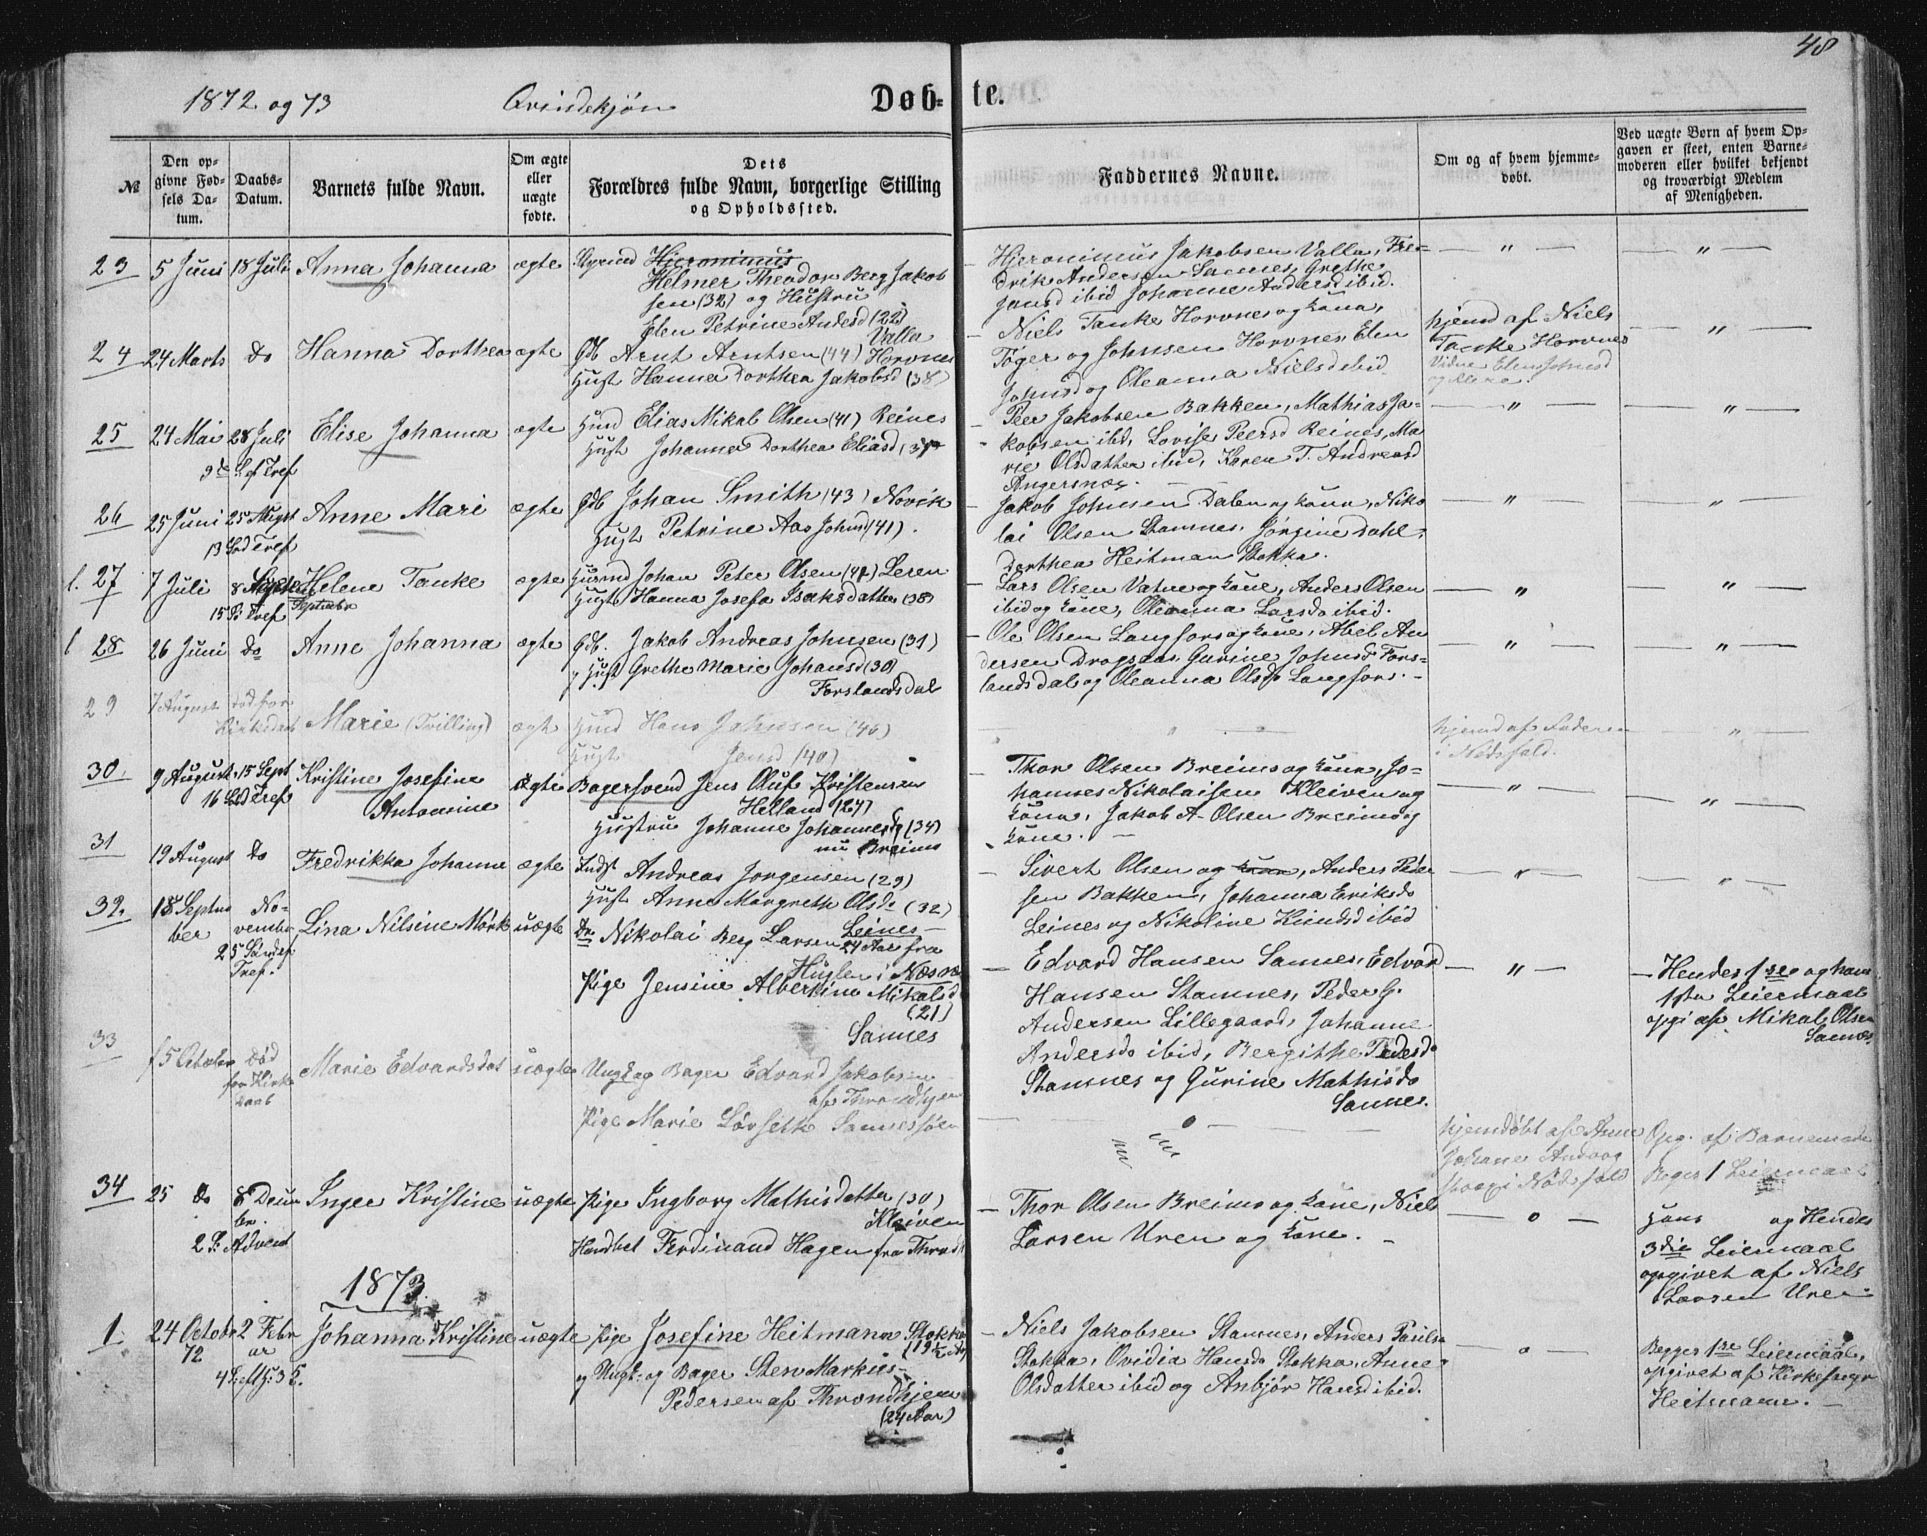 48
1872 og 73 Qvindekjøn Døbte.
№
Den opgivne Fødsels Datum.
Daabs-Datum.
Barnets fulde Navn.
Om ægte eller uægte fødte.
Dets Forældres fulde Navn, borgerlige Stilling og Opholdssted.
Faddernes Navne.
Om og af hvem hjemmedøbt.
Ved uægte Børn af hvem Opgaven er skeet, enten Barnemoderen eller hvilket bekjendt og troværdigt Medlem af Menigheden.
23 5 Juni 18 Juli Anna Johanna ægte Hieronimus
Helmer Theodor Berg Jakob
sen (32) og Hustru
Elen Petrine Andesd (22)
Valla
Hjeronimus Jakobsen Valla, Fre-
drik Andersen Sannes, Grethe
Jansd ibid Johanne Andersd ibid.
— " —
— " —
24 24 Marts do Hanna Dorthea ægte Gdb Arnt Arntsen (44) Horvnes
Hust Hanna Dorthea Jakobsd (38)
Niels Tanke Horvnes og Kone,
Tøger og Johnsen Horvnes Elen
Johnsd og Oleanna Nielsd ibid
hjemd af Niels
Tanke Horvnes
Vidne Elen Johnsd
og Mere.
— " —
25 24 Mai 28 Juli Elise Johanna ægte Hmd Elias Mikal Olsen (41) Reines
9de S ef Tref Hust Johanna Dorthea Eliasd
Peer Jakobsen Bakken, Mathias Ja-
kobsen ibd, Lovise Peersd Reines, Ma
rie Olsdatter ibid, Karen T. Andreasd
Angersnæs. —
— " —
— " —
26 25 Juni 25 August Anne Mari ægte Gdb Johan Smith (43) Novik
13 Sød Tref Hust Petrine Aas Johnsd (41).
Jakob Johnsen Dalen og Kone, Niko
lai Olsen Stamnes, Jørgine Dahl,
Dorthea Heitman Stokka.
— " —
— " —
27 7 Juli 8 Septbr Helene Tanke ægte Huusmd Johan Peter Olsen Leren
15 S: Tref Septembr Hust Hanna Josefa Isaksdatter (38)
Lars Olsen Vatne og Kone, Anders Olsen
ibid og Kone, Oleanna Larsd ibid.
— " —
— " —
28 26 Juni do Anne Johanna ægte Gdb. Jakob Andreas Johnsen (31)
Hust Grethe Marie Johansd (30)
Forslandsdal
Ole Olsen Langfors og Kone, Abel An
dersen Dragsaas, Gurine Johnsd Fors-
landsdal og Oleanna Olsd Langfors. —
— " —
— " —
29 7 August død før
Kirkedaab Marie (Tvilling) ægte Hmd Hans Johnsen
Hust Jensd (40)
"
hjemd af Faderen
i Nødsfald.
"
30 9 August 15 Sept Kristine Josefine
Antonine ægte Bagersvend Jens Oluf Kristensen
16 S Tref Helland (27)
Hustru Johanne Johannesd (34)
nu Breims
Thor Olsen Breims og Kone, Jo-
hannes Nikolaisen Kleiven og
Kone, Jakob A. Olsen Breims og
Kone. —
— " —
— " —
31 19 August do Fredrikka Johanne ægte Inds Andreas Jørgensen (29)
Hust Anne Margreth Olsd (32)
Leines
Sivert Olsen og Kone, Anders Peder
sen Bakken, Johanna Eriksd
Leines og Nikoline Knudsd ibid
— " —
— " —
32 18 Septem
ber No-
vembr
25 Søndag
Tref. Lina Nilsine Mørk uægte Dr. Nikolai Berg Larsen 24 Aar fra
Huglen i Næsne
Pige Jensine Albertine Mikalsd
(21)
Sannes
Edvard Hansen Sannes, Edvard
Hansen Stamnes, Peder G.
Andersen Lillegaard, Johanne
Andersd ibid, Bergithe Pedesd
Stamnes og Gurine Mathisd
Sannes.
— " —
Hendes 1ste og hans
1ste Leiermaal
opgi af Mikal Olsen
Sannes
33 15 October død
før Kirke
daab Marie Edvardsdat uægte Ungk og Bager Edvard Jakobsen
af Throndhjem
Pige Marie Løvseth Sannessøen
hjemdøbt af Anne
Johane Andvog
i Nødsfald
Opg. af Barnemode
Beges 1 Leiermaal
34 25 do 8 Decem
br.
2 S. Advent Inger Kristine uægte Pige Ingborg Mathisdatter (30)
Kleiven
Handbet Ferdinand Hagen fra Thrond
Thor Olsen Breims og Kone, Niels
Larsen Uren og Kone. —
— o —
Hans og Hendes
3die Leiermaal
opgivet af Niels
Larsen Uren
1873.
1. 24 Octobr
72 2 Febr
ar Johanna Kristine uægte Pige Josefine Heitmann Stokka
(19½ Aar)
og Ungk: og Bager Sten Markus
Pedersen af Throndhjem
(24 Aar)
Niels Jakobsen Stamnes, Anders Paulse
Stokka, Ovidia Hansd Stokka, Anne
Olsdatter ibid og Anbjør Hansd ibid.
— o —
Begges 1ste Leiermaal,
opgivet af Kirkesanger
Heitmann. —